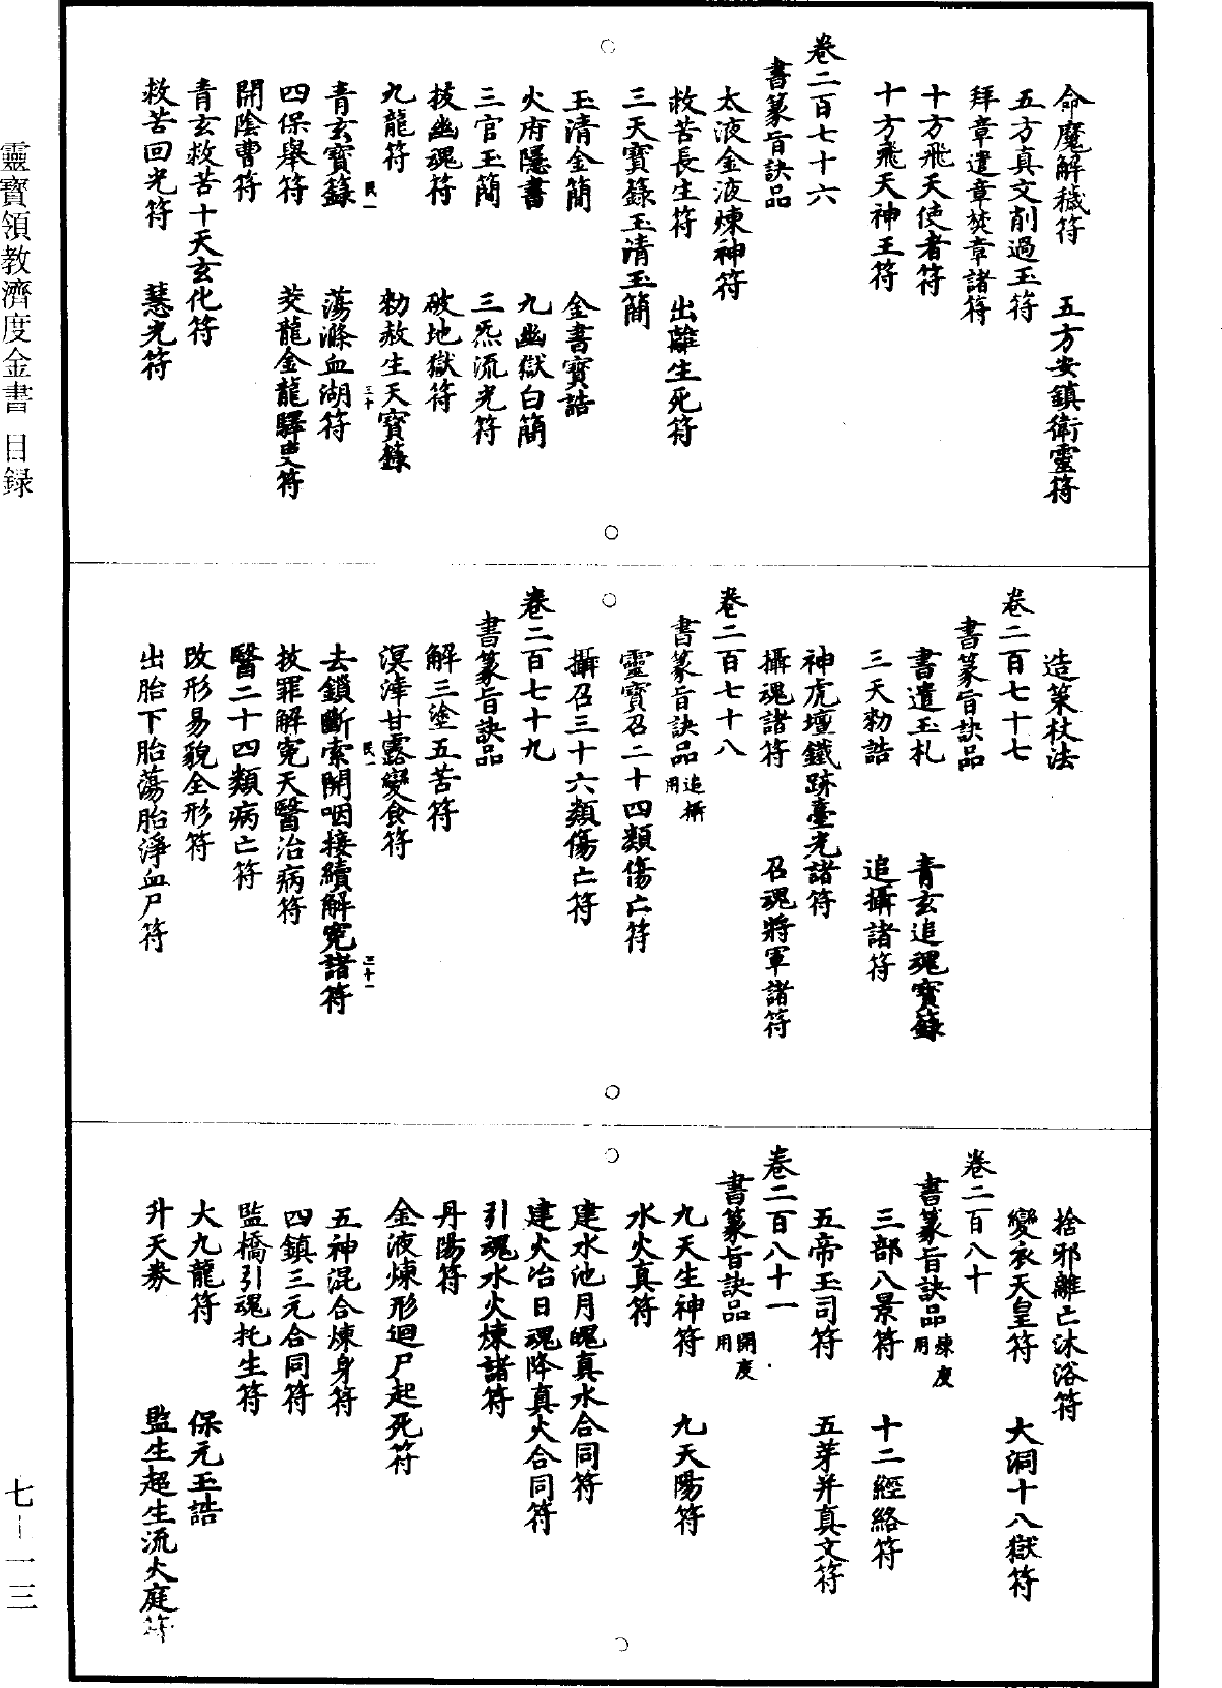 命魔解穢符　五方安鎮衛靈符
五方真文削過玉符
拜章遣章焚章諸符
十方飛天使者符
十方飛天神王符
卷二百七十六
書篆旨訣品
太液金液煉神符
救苦長生符　出離生死符
三天寶籙玉清玉簡
玉清金簡　金書寶誥
火府隱書　九幽獄白簡
三官玉簡　三炁流光符
拔幽魂符　破地獄符
九龍符　勑赦生天寶籙
民一　三十
青玄寶籙　蕩滌血湖符
四保舉符　茭龍金龍驛吏符
開陰曹符
青玄救苦十天玄化符
救苦回光符　慧光符
造策杖法
卷二百七十七
書篆旨訣品
書遣玉札　青玄追魂寶籙
三天勑誥　追攝諸符
神虎壇鐵跡臺光諸符
攝魂諸符　召魂將軍諸符
卷二百七十八
書篆旨訣品追攝用
靈寶召二十四類傷亡符
攝召三十六類傷亡符
卷二百七十九
書篆旨訣品
解三塗五苦符
溟涬甘露變食符
民一　三十一
去鎖斷索開咽接續解冤諸符
拔罪解冤天醫治病符
醫二十四類病亡符
改形易貌全形符
出胎下胎蕩胎淨血尸符
捨邪離亡沐浴符
變衣天皇符　大洞十八獄符
卷二百八十
書篆旨訣品煉度用
三部八景符　十二經絡符
五帝玉司符　五芽并真文符
卷二百八十一
書篆旨訣品開度用
九天生神符　九天陽符
水火真符
建水池月魄真水合同符
建火冶日魂降真火合同符
引魂水火煉諸符
丹陽符
金液煉形迴尸起死符
五神混合煉身符
四鎮三元合同符
監橋引魂托生符
大九龍符　保元玉誥
升天券　監生超生流火庭符
靈寶領教濟度金書　目録
七－一三